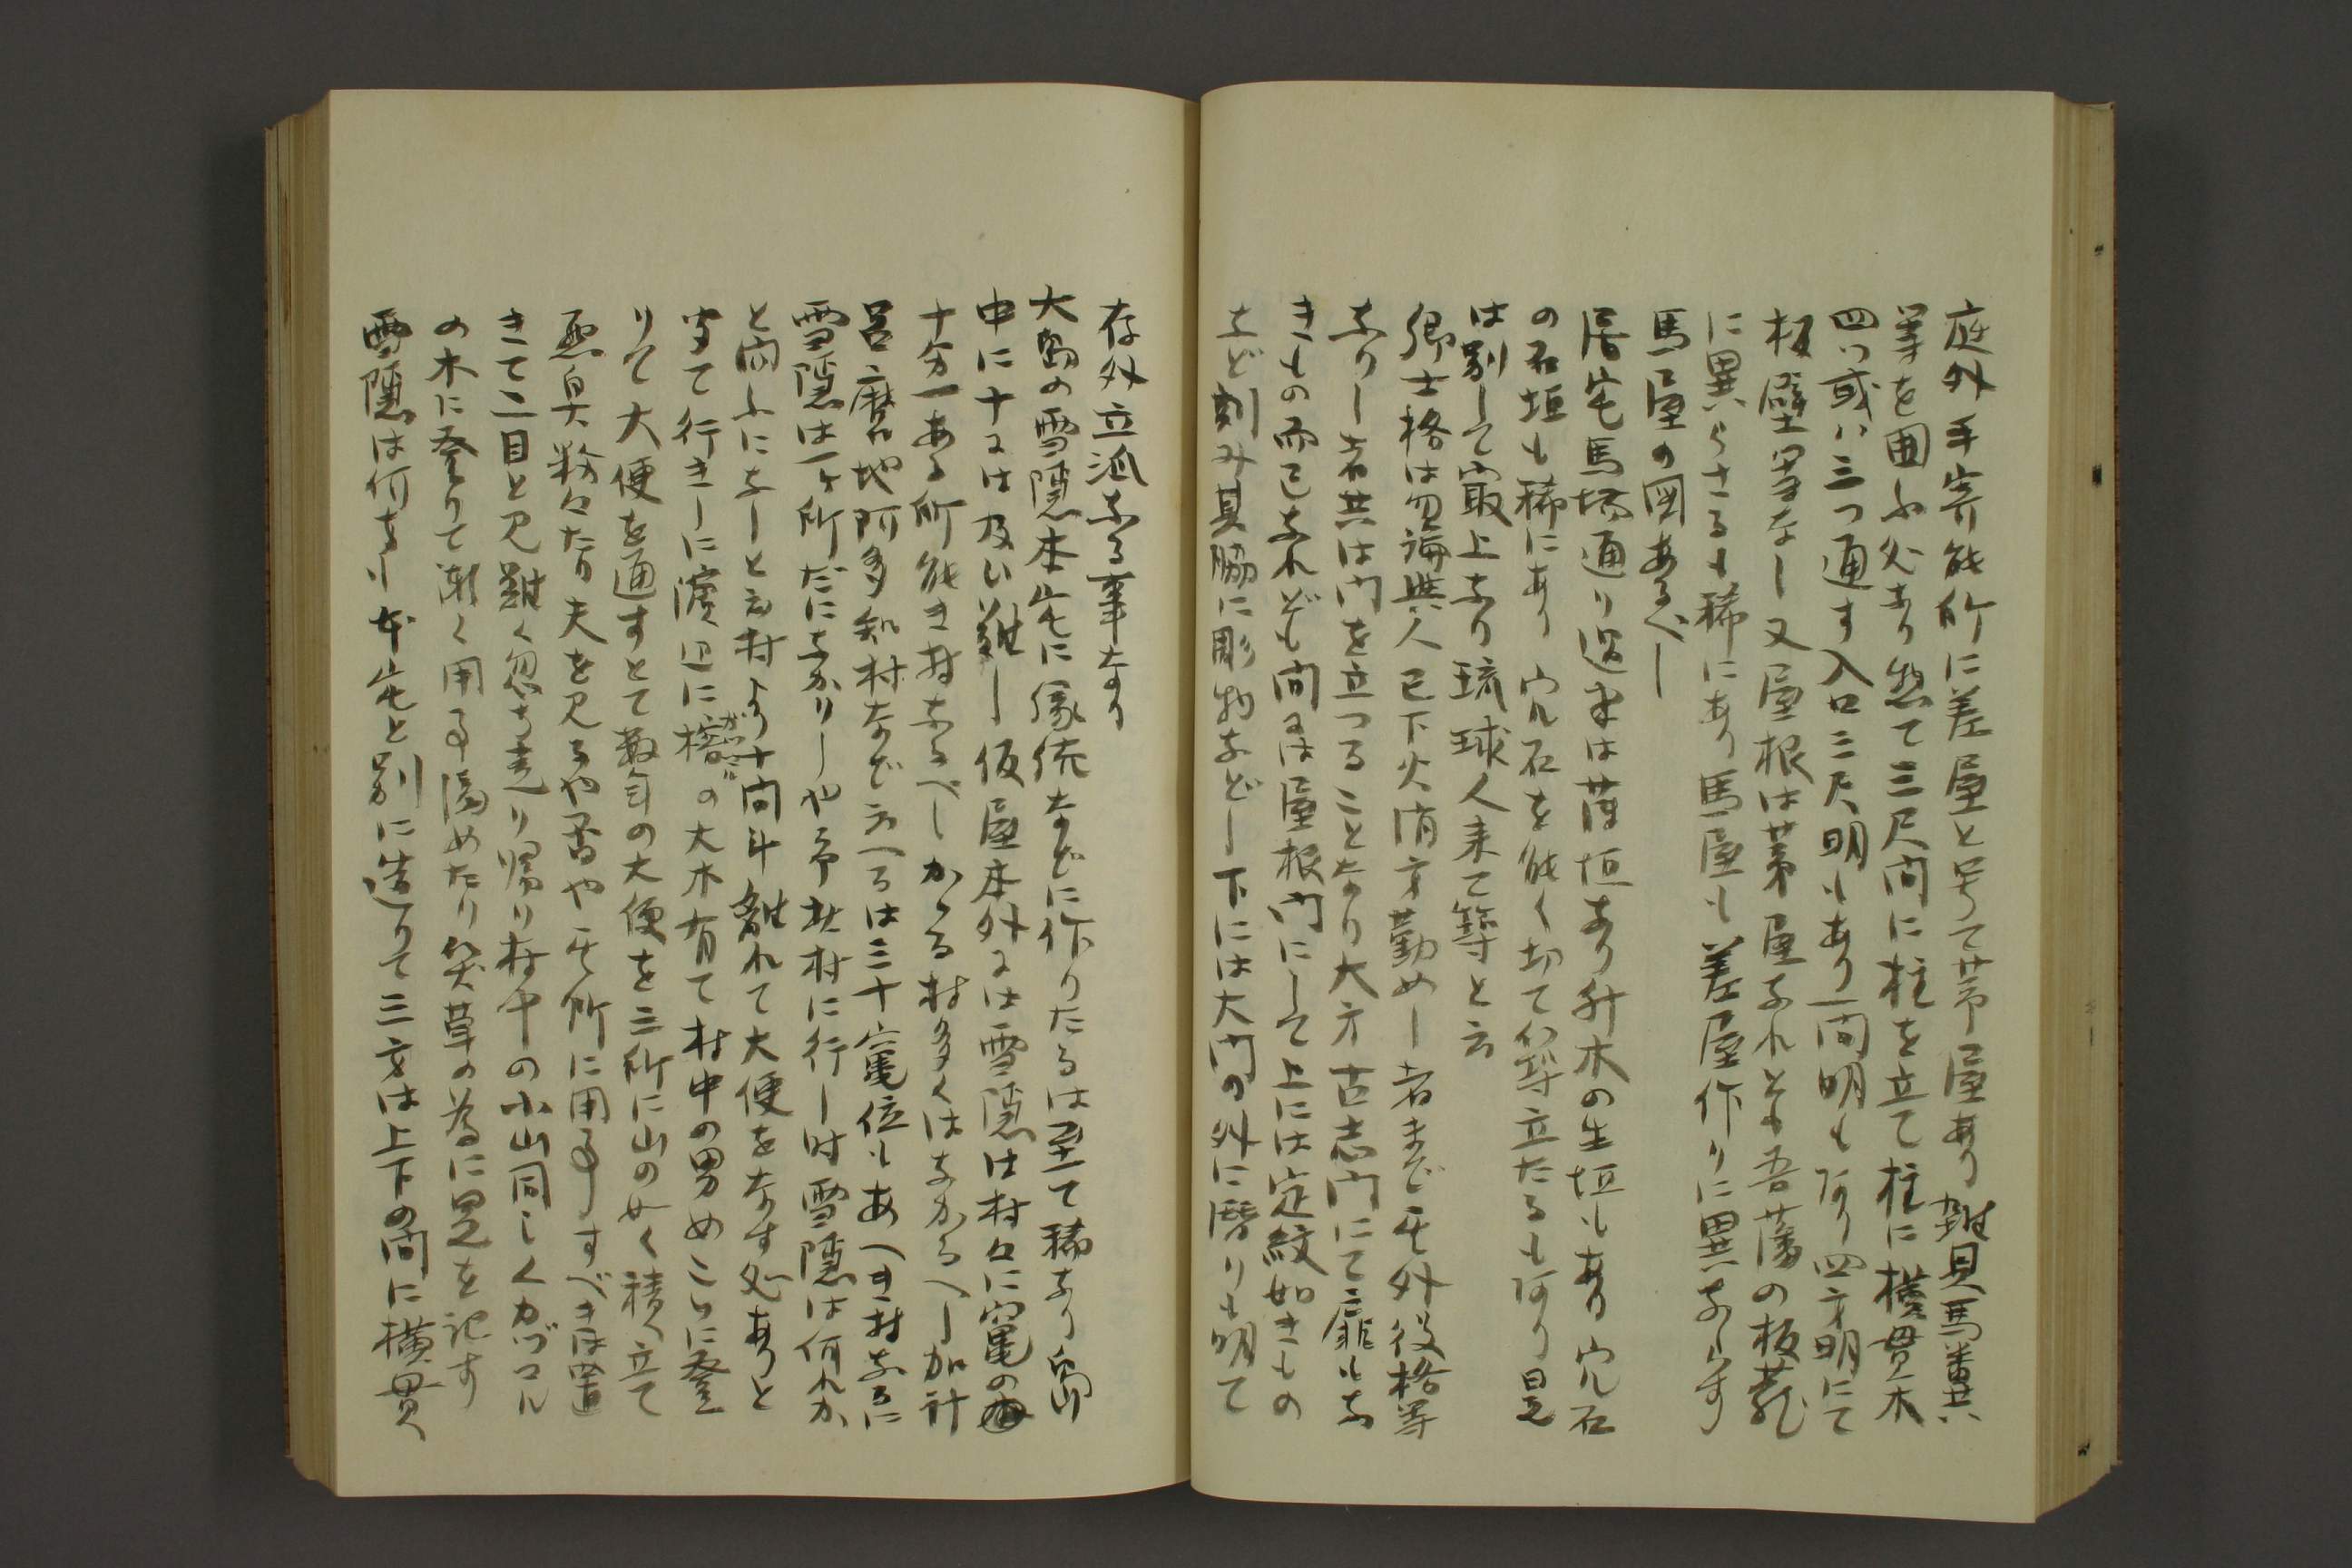 庭外手寄能所に差屋と号て茅屋あり雑具馬糞共
等を囲ふ処あり惣て三尺間に柱を立て柱に横貫木
四ツ或ハ三つ通す入口三尺明もあり一間明も有り四方明にて
板壁等なし又屋根は茅屋なれとも吾藩の板葺
に異ならさるも稀にあり馬屋も差屋作りに異ならす
馬屋の図あるべし
居宅馬場通り近来は薩垣あり升木の生垣もあり穴石
の石垣も稀にあり穴石を能く切て築立たるも有り是
は別して最上なり琉球人来て築と云
郷士格は勿論与人已下火消方勤めし者まで其外役格等
なりし者共は門を立つることなり大方古志門にて扉もな
きもの而已なれども間には屋根門にして上には定紋如きもの
など刻み其脇に彫物などし下には大門の外に潜りも明て
存外立派なる事なり
大島の雪隠本宅に縁続などに作りたるは至て稀なり島
中に十には及ひ難し仮屋本外には雪隠は村々に竃の
十分一ある所能き村なるべしかゝる村多くはなかるへし加計
呂麻地阿多知村などゝ云へるは三十竃位もあへき村なるに
雪隠は一ヶ所だになかりしや予此村に行し時雪隠は何れか
と問ふになしと云村より十間斗離れて大便をなす処ありと
聞て行きしに濱辺に榕の大木有て村中の男めこゝに登
りて大便を通すとて数年の大便を三所に山の如く積立て
悪臭紛々たり夫を見るや否や其所に用事すべきは置
きて二目と見難く忽ち走り帰り村中の小山同しくガヅマル
の木に登りて漸く用事済めたり笑草の為に是を記す
雪隠は何方も本宅と別に造りて三方は上下の間に横貫